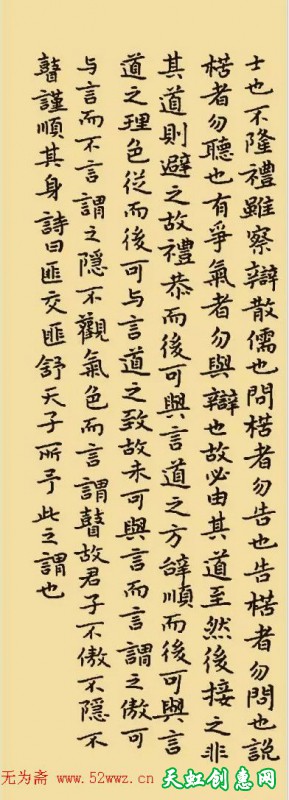 士也不隆禮雖察辯散儒也問楛者勿告也告楛者勿問也說
楛者勿聽也有爭氣者勿與辯也故必由其道至然後接之非
其道則避之故禮恭而後可與言道之方辭順而後可與言
道之理色從而後可与言道之致故未可與言而言謂之傲可
与言而不言謂之隱不觀氣色而言謂瞽故君子不傲不隱不
瞽謹順其身詩曰匪交匪舒天子所予此之謂也
无为斋 www.52wwz.cn
天虹创意网